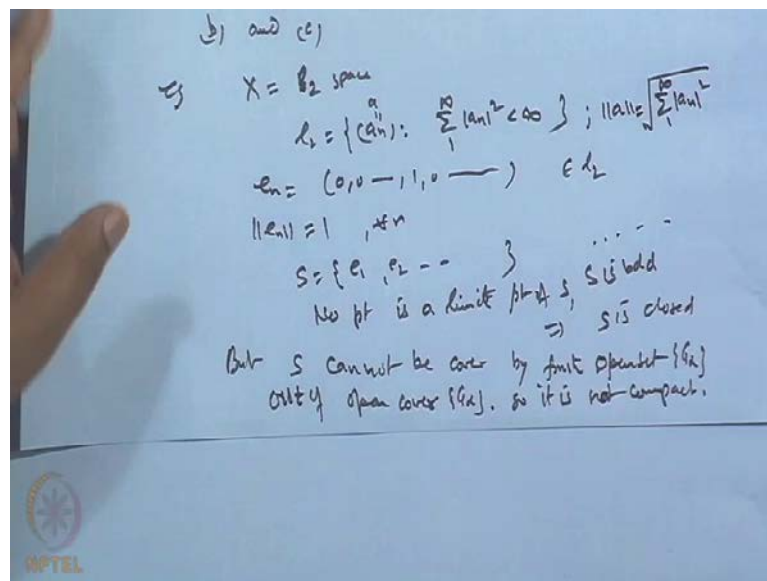 b) and (c)
eg X = l2 space
l2 = { (an) : ∑_1^∞ |an|^2 < ∞ } ; ||a|| = √(∑_1^∞ |an|^2)
a
en = (0,0 —, 1, 0 —— ) ∈ l2
||en|| = 1 , ∀n
S = { e1 , e2 -- }
No pt is a limit pt of S, S is bdd
⇒ S is closed
But S cannot be cover by finit open set {Gα}
out of open cover {Gα}. so it is not compact.
NPTEL